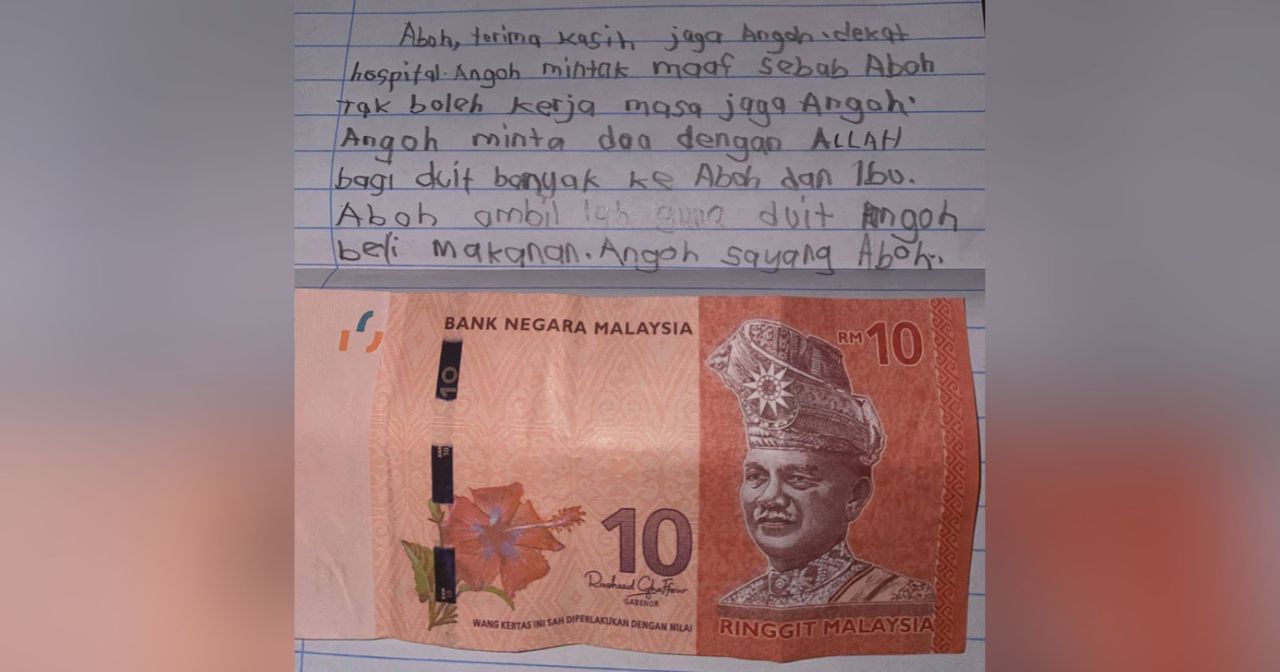 Aboh, terima kasih jaga Angoh dekat
hospital. Angoh mintak maaf sebab Aboh
Tak boleh kerja masa jaga Angoh.
Angoh minta doa dengan ALLAH
bagi duit banyak ke Aboh dan Ibu.
Aboh ambil lah guna duit Angoh
beli makanan. Angoh sayang Aboh.
BANK NEGARA MALAYSIA
RM 10
10
10
Rasheed Ghaffour
GABENOR
WANG KERTAS INI SAH DIPERLAKUKAN DENGAN NILAI
RINGGIT MALAYSIA